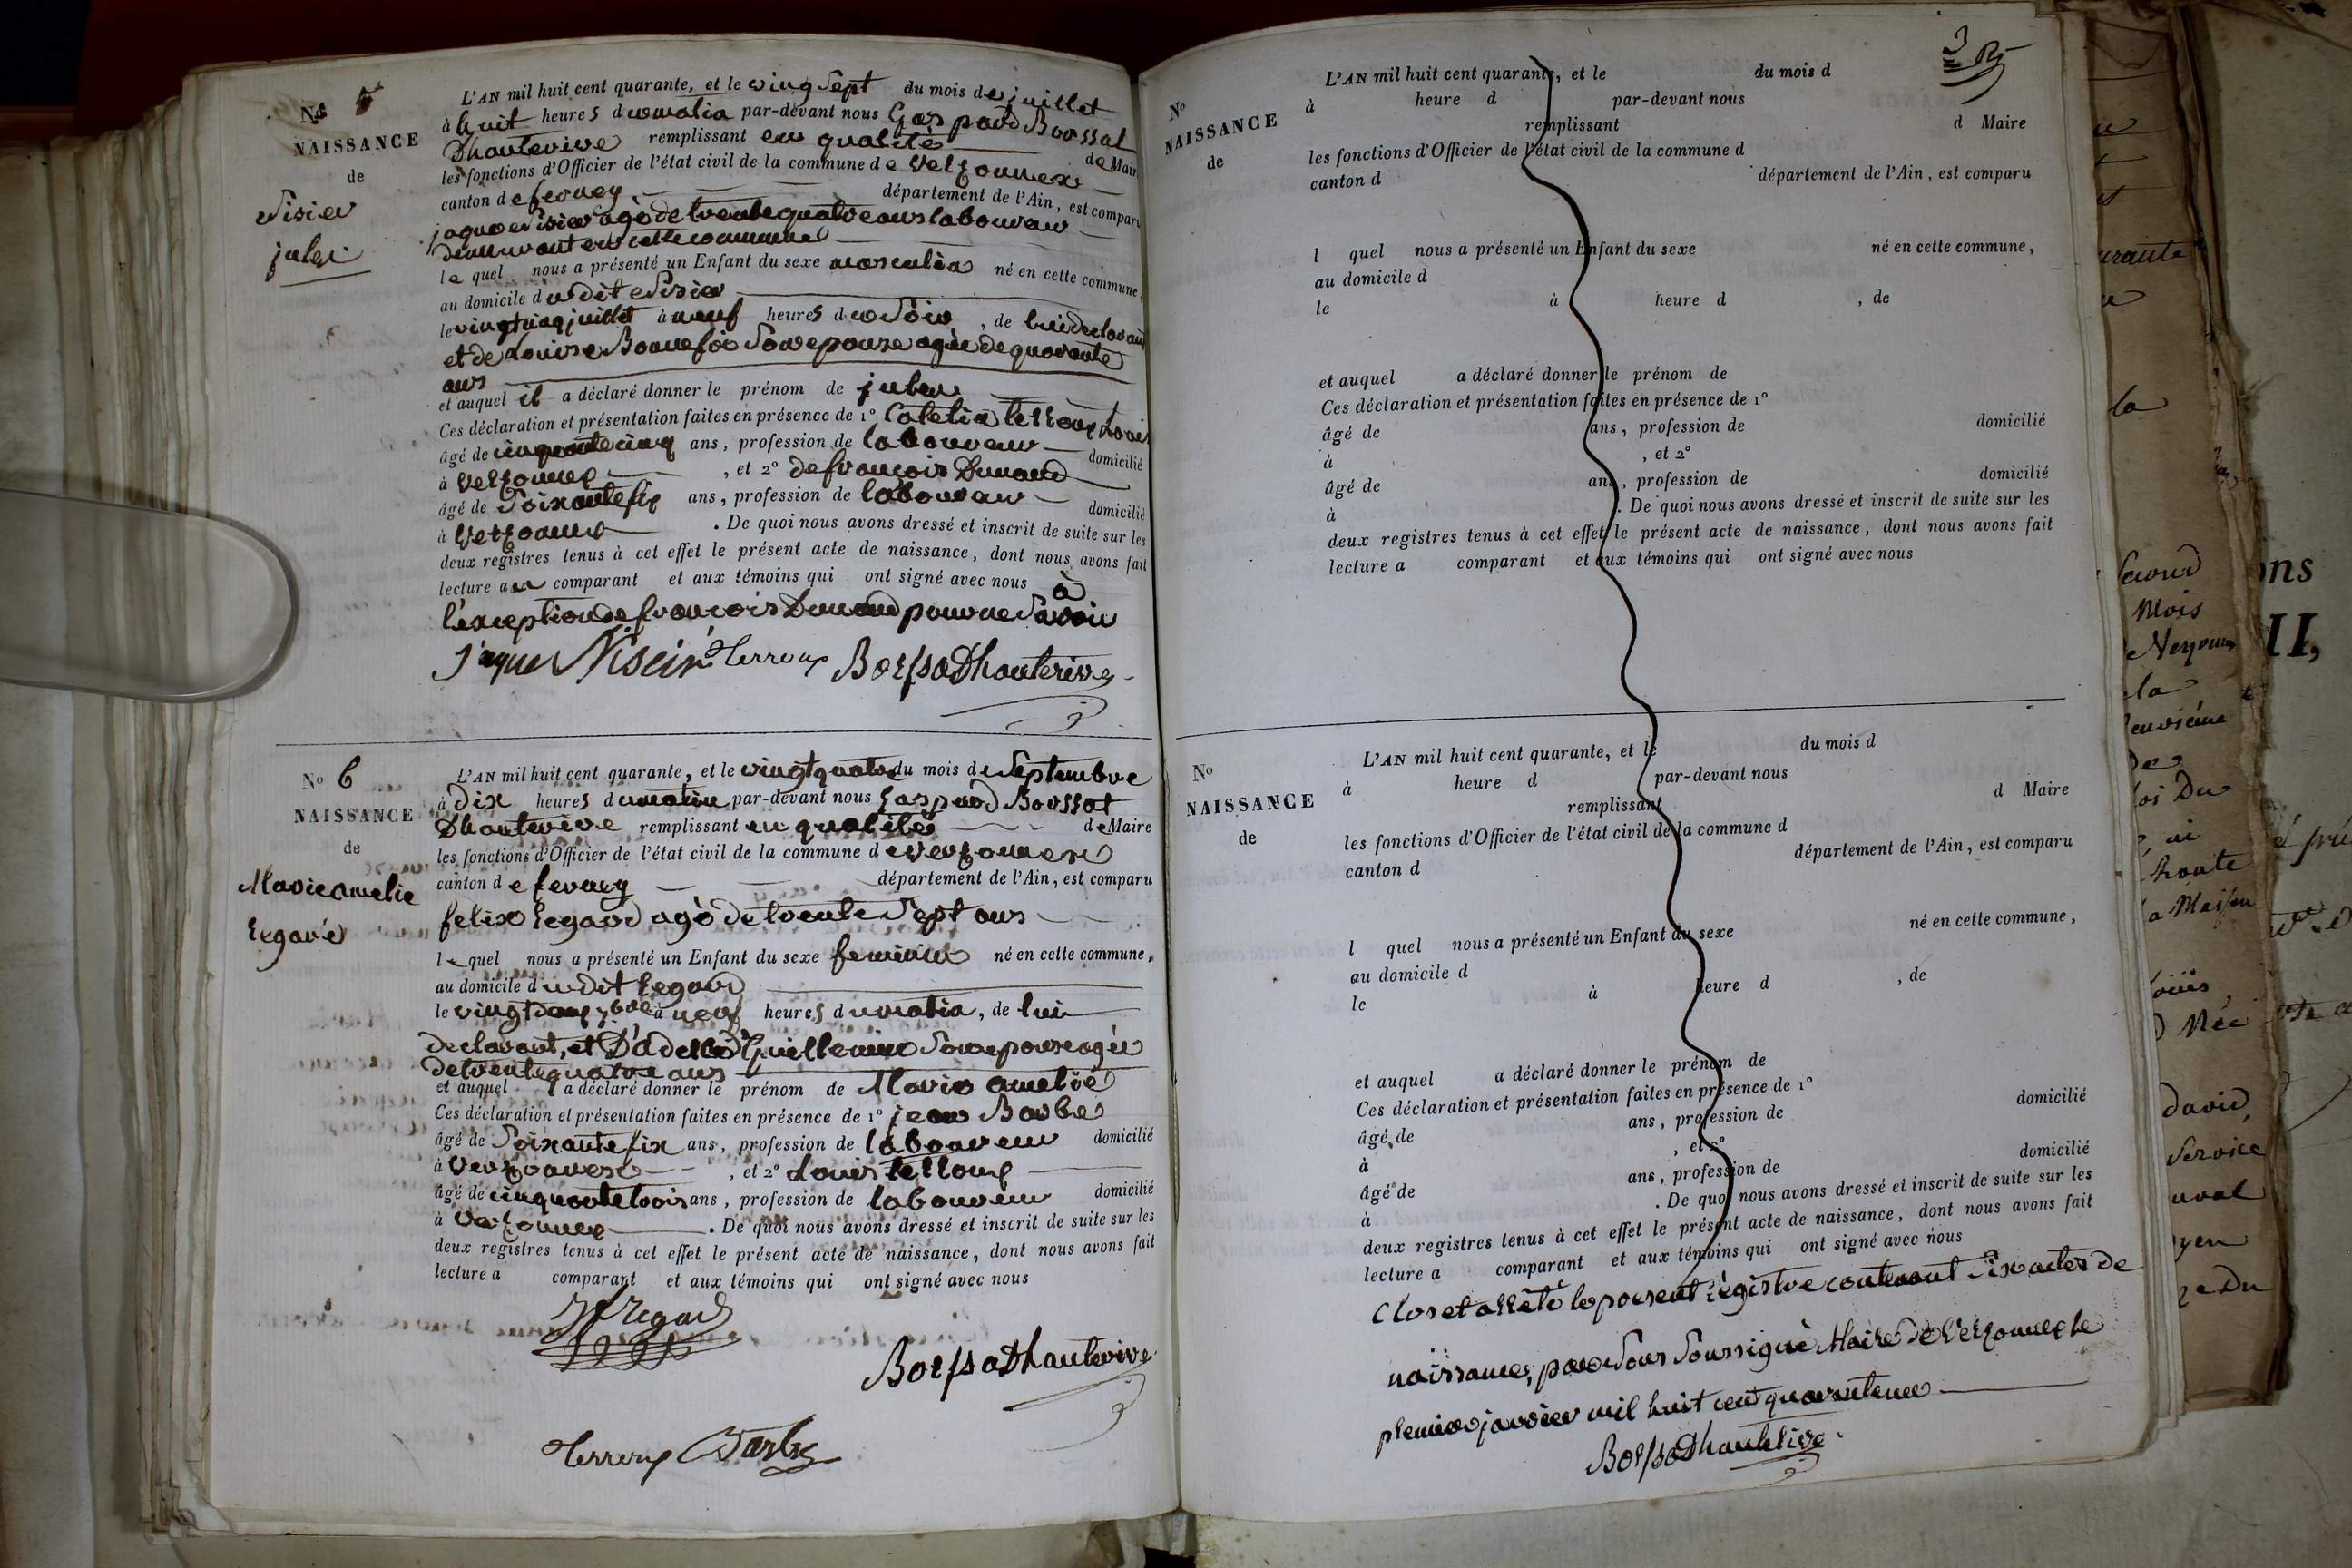 N° 5
NAISSANCE
de
Nisier
jules
L'AN mil huit cent quarante, et le ving Sept du mois de juillet
à huit heures du matin par-devant nous Gaspard Borssat
Dhauterive remplissant en qualité de Maire
les fonctions d'Officier de l'état civil de la commune de Versonnex
canton de ferney département de l'Ain, est comparu
jaque Nisier agé de trente quatre ans laboureur
demeurant en cette commune
le quel nous a présenté un Enfant du sexe masculin né en cette commune,
au domicile du dit Nisier
le vingt cinq juillet à neuf heures du Soir, de lui declarant
et de Louise Bonnefoi Son epouse agée de quarante
ans
et auquel il a déclaré donner le prénom de jules
Ces déclaration et présentation faites en présence de 1° Louis
âgé de cinquante cinq ans, profession de laboureur domicilié
à Versonnex, et 2° de françois Dunand
âgé de Soixante Six ans, profession de laboureur domicilié
à Versonnex. De quoi nous avons dressé et inscrit de suite sur les
deux registres tenus à cet effet le présent acte de naissance, dont nous avons fait
lecture au comparant et aux témoins qui ont signé avec nous à
l'exception de françois Dunand pour ne Savoir
Jaque Nisier Terroux Borssat Dhauterive
N° 6
NAISSANCE
de
Marie amelie
Regard
L'AN mil huit cent quarante, et le vingt quatre du mois de Septembre
à Dix heures du matin par-devant nous Gaspard Borssat
Dhauterive remplissant en qualité de Maire
les fonctions d'Officier de l'état civil de la commune de Versonnex
canton de ferney département de l'Ain, est comparu
felix Regard agé de trente Sept ans
le quel nous a présenté un Enfant du sexe feminin né en cette commune,
au domicile du dit Regard
le vingt deux 7bre à neuf heures du matin, de lui
declarant, et D'adelle Guillermin Son epouse agée
de trente quatre ans
et auquel a déclaré donner le prénom de Marie amelie
Ces déclaration et présentation faites en présence de 1° jean Barbe
âgé de Soixante Six ans, profession de laboureur domicilié
à Versonnex, et 2° Louis terroux
âgé de cinquante trois ans, profession de laboureur domicilié
à Versonnex. De quoi nous avons dressé et inscrit de suite sur les
deux registres tenus à cet effet le présent acte de naissance, dont nous avons fait
lecture a comparant et aux témoins qui ont signé avec nous
Regard
Borssat Dhauterive
Terroux Barbe
N°
NAISSANCE
de
L'AN mil huit cent quarante, et le du mois d
à heure d par-devant nous
remplissant d Maire
les fonctions d'Officier de l'état civil de la commune d
canton d département de l'Ain, est comparu
l quel nous a présenté un Enfant du sexe né en cette commune,
au domicile d
le à heure d , de
et auquel a déclaré donner le prénom de
Ces déclaration et présentation faites en présence de 1°
âgé de ans, profession de domicilié
à , et 2°
âgé de ans, profession de domicilié
à . De quoi nous avons dressé et inscrit de suite sur les
deux registres tenus à cet effet le présent acte de naissance, dont nous avons fait
lecture a comparant et aux témoins qui ont signé avec nous
N°
NAISSANCE
de
L'AN mil huit cent quarante, et le du mois d
à heure d par-devant nous
remplissant d Maire
les fonctions d'Officier de l'état civil de la commune d
canton d département de l'Ain, est comparu
l quel nous a présenté un Enfant du sexe né en cette commune,
au domicile d
le à heure d , de
et auquel a déclaré donner le prénom de
Ces déclaration et présentation faites en présence de 1°
âgé de ans, profession de domicilié
à , et 2°
âgé de ans, profession de domicilié
à . De quoi nous avons dressé et inscrit de suite sur les
deux registres tenus à cet effet le présent acte de naissance, dont nous avons fait
lecture a comparant et aux témoins qui ont signé avec nous
Clos et arrêté le present régistre contenant Six actes de
naissance, par Nous Soussigné Maire de Versonnex le
premier janvier mil huit cent quarante un
Borssat Dhauterive